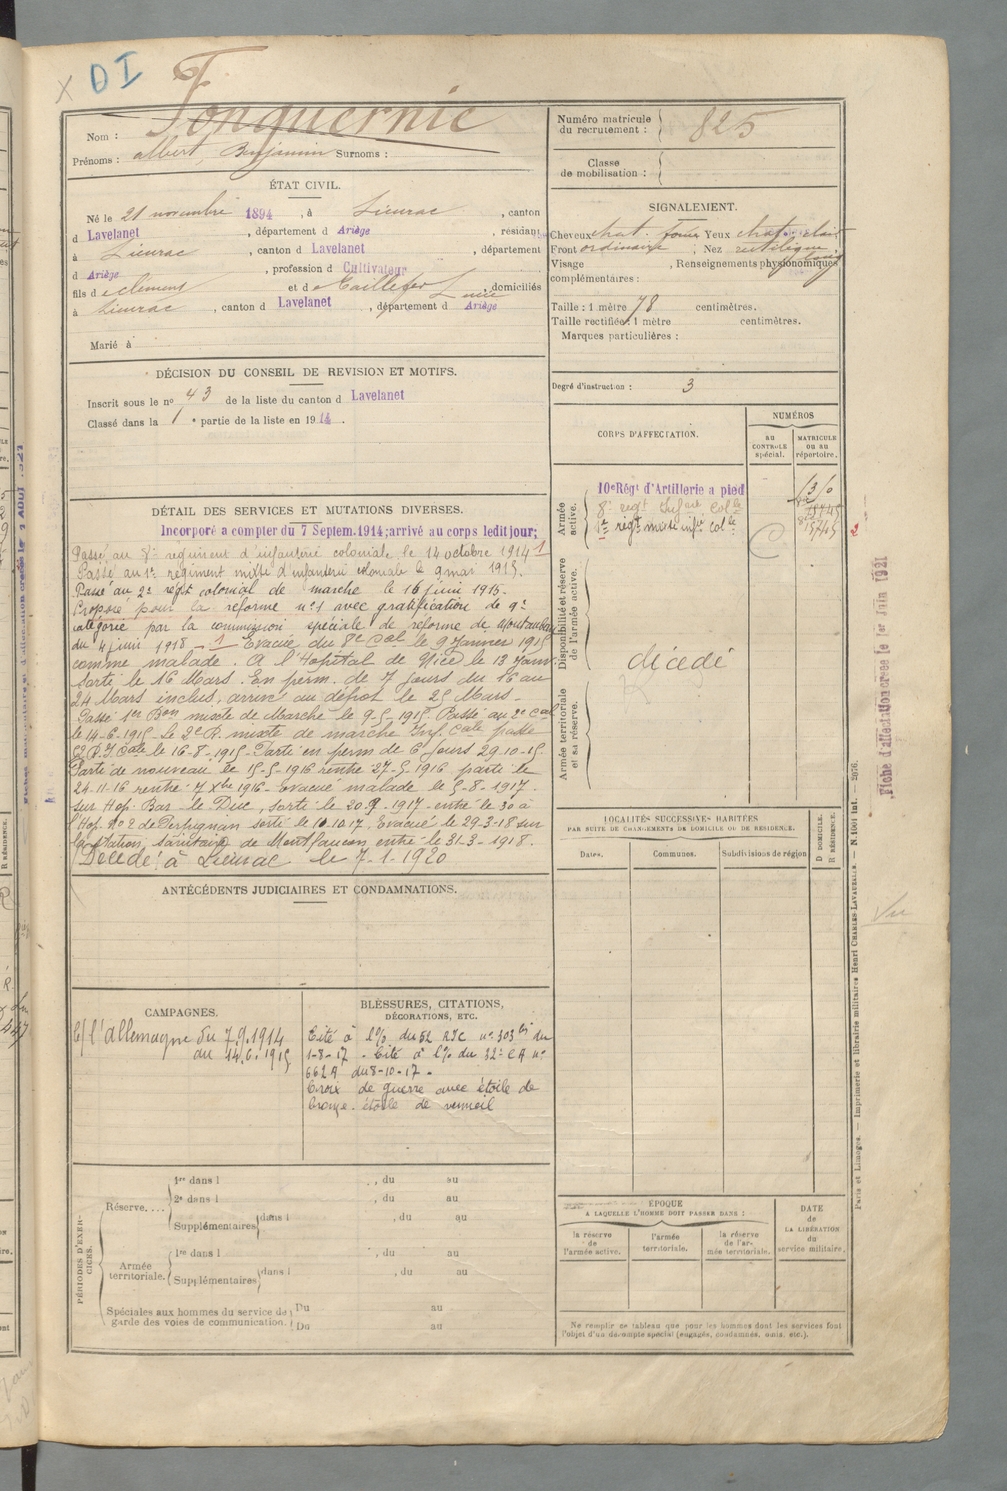 x DI
Nom : Fonquernie
Prénoms : albert, Benjamin Surnoms :
Numéro matricule du recrutement : 825
Classe de mobilisation :
ÉTAT CIVIL.
Né le 21 novembre 1894, à Lieurac, canton
d Lavelanet, département d Ariège, résidant
à Lieurac, canton d Lavelanet, département
d Ariège, profession d Cultivateur
fils de Clément et de Taillefer, domiciliés
à Lieurac, canton d Lavelanet, département d Ariège
Marié à
SIGNALEMENT.
Cheveux chat. foncé Yeux chat. clair
Front ordinaire ; Nez rectiligne ;
Visage , Renseignements physionomiques
complémentaires :
Taille : 1 mètre 78 centimètres.
Taille rectifiée : 1 mètre centimètres.
Marques particulières :
DÉCISION DU CONSEIL DE REVISION ET MOTIFS.
Inscrit sous le no 43 de la liste du canton d Lavelanet
Classé dans la 1e partie de la liste en 1914.
Degré d'instruction : 3
CORPS D'AFFECTATION.
NUMÉROS
AU CONTRÔLE spécial.
MATRICULE OU AU répertoire.
Armée active.
10e Régt d'Artillerie a pied
8e régt infie colle
1er régt mixte infie colle
Disponibilité et réserve de l'armée active.
décédé
Armée territoriale et sa réserve.
DÉTAIL DES SERVICES ET MUTATIONS DIVERSES.
Incorporé a compter du 7 Septem. 1914; arrivé au corps ledit jour;
Passé au 8e régiment d'infanterie coloniale le 14 octobre 1914 1
Passé au 1er régiment mixte d'infanterie coloniale le 9 mai 1915.
Passé au 2e régt colonial de marche le 16 juin 1915.
Proposé pour la réforme no 1 avec gratification de 9e
catégorie par la commission spéciale de réforme de Montauban
du 4 juin 1918 - 1 Evacué du 8e Cal le 9 Janvier 1915
comme malade. A l'Hopital de Nice le 13 Janv.
Sorti le 16 Mars. En perm. de 7 jours du 16 au
24 Mars inclus, arrivé au dépôt le 25 Mars -
Passé 1er Bon mixte de Marche le 9-5-1915. Passé au 2e Cal
le 14-6-1915. le 2e R. mixte de marche Inf. Cale passe
52 R.I. Cale le 16-8-1915 - Parti en perm de 6 jours 29-10-15.
Parti de nouveau le 15-5-1916 rentré 27-5-1916 parti le
24-11-16 rentré 7 Xbre 1916. Evacué malade le 5-8-1917.
sur Hop. Bar le Duc, sorti le 20.9-1917 - entré le 30 à
l'Hop. No 2 de Perpignan sorti le 10.10.17, Evacué le 29-3-18 sur
la station sanitaire de Montfaucon entré le 31-3-1918.
Décédé à Lieurac le 7-1-1920
LOCALITÉS SUCCESSIVES HABITÉES
PAR SUITE DE CHANGEMENTS DE DOMICILE OU DE RÉSIDENCE.
Dates.
Communes.
Subdivisions de région
D DOMICILE.
R RÉSIDENCE.
ANTÉCÉDENTS JUDICIAIRES ET CONDAMNATIONS.
CAMPAGNES.
C/ l'allemagne du 7.9.1914
au 14.6.1915
BLESSURES, CITATIONS,
DÉCORATIONS, ETC.
Cité à l'O/ du 52 RIC no 303 bis du
1-8-17 - Cité à l'O/ du 32e CA no
662 A du 8-10-17 -
Croix de guerre avec étoile de
bronze - étoile de vermeil
PÉRIODES D'EXERCICES.
Réserve....
1re dans l , du au
2e dans l , du au
Supplémentaires dans l , du au
Armée territoriale.
1re dans l , du au
Supplémentaires dans l , du au
Spéciales aux hommes du service de garde des voies de communication.
Du au
Du au
ÉPOQUE
A LAQUELLE L'HOMME DOIT PASSER DANS :
la réserve de l'armée active.
l'armée territoriale.
la réserve de l'armée territoriale.
DATE de LA LIBÉRATION du service militaire.
Ne remplir ce tableau que pour les hommes dont les services font
l'objet d'un décompte spécial (engagés, condamnés, omis, etc.).
Paris et Limoges. — Imprimerie et librairie militaires Henri CHARLES-LAVAUZELLE.
Fiche d'affectation créée le 1er Juin 1921
Vu